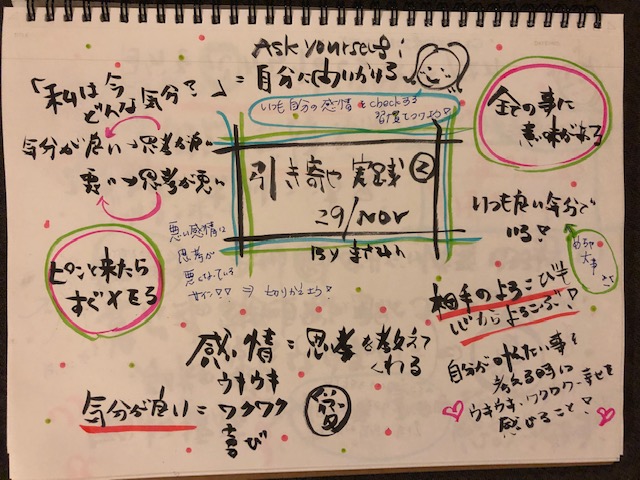 Ask yourself!
= 自分に問いかける
「私は今
どんな気分？」
いつも自分の感情をcheckする
習慣をつけよう!
全ての事に
意味がある
気分が良い→思考が良い
悪い→思考が悪い
引き寄せ 実践 ②
29/NOV
BY まさみん
いつも良い気分で
いる!
めちゃ
大事
悪い感情は
思考が
悪くなっている
サイン!! ⇒ 切りかえよう!
ピンと来たら
すぐメモる
相手のよろこびを
心からよろこぶ!
感情 = 思考を教えて
くれる
気分が良い =
ウキウキ
ワクワク
喜び
自分が叶えたい事を
考える時に
ウキウキ・ワクワク・幸せを
感じること!